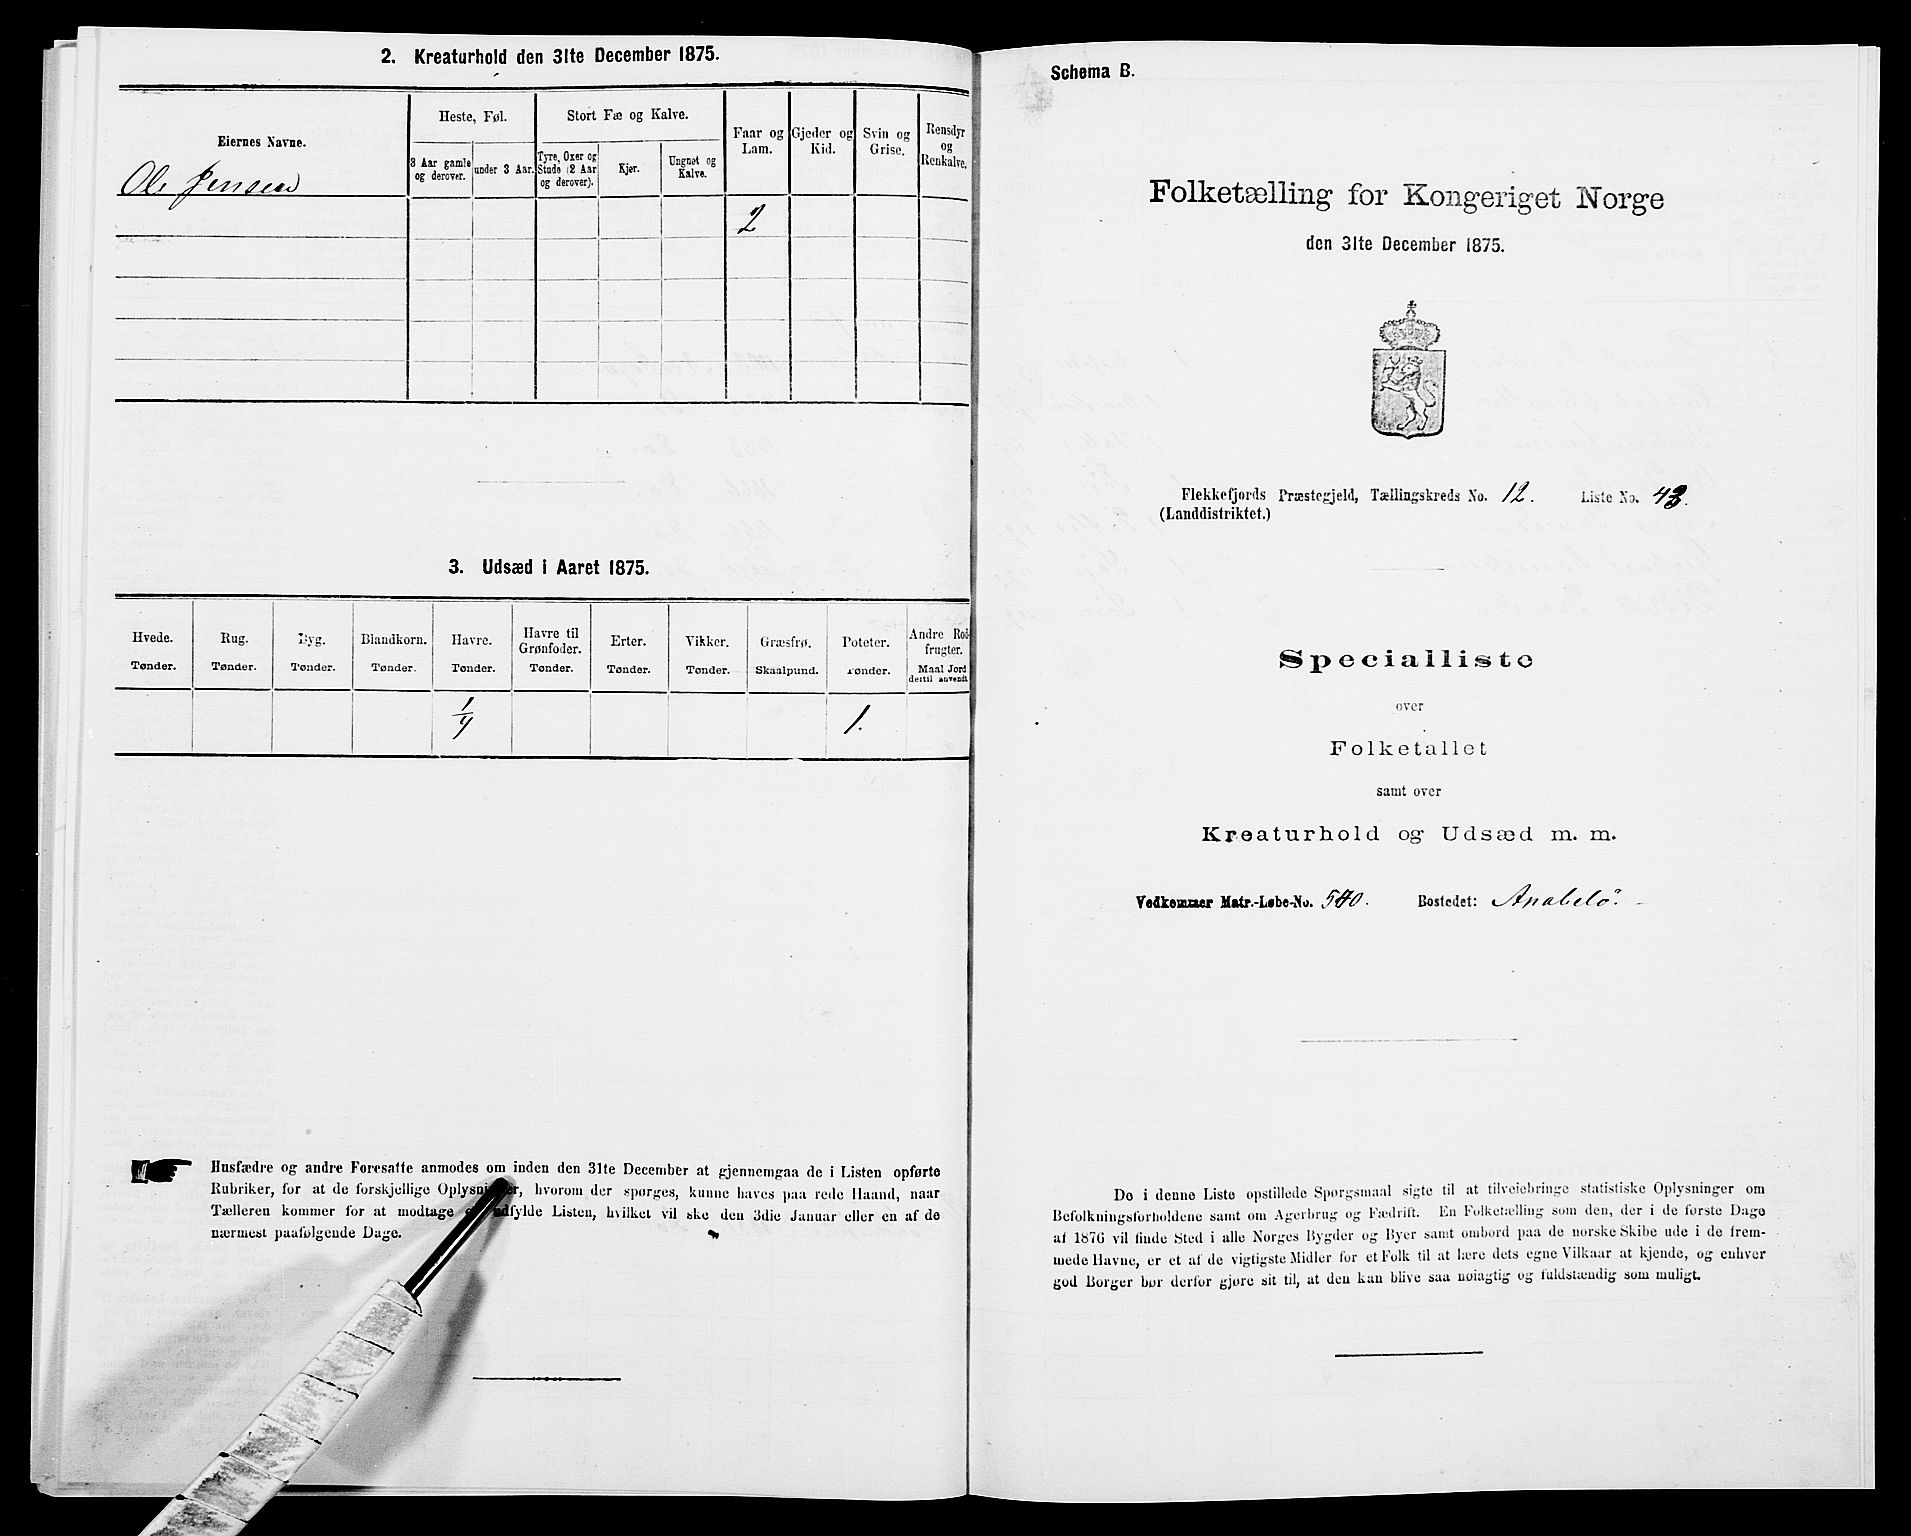 2. Kreaturhold den 31te December 1875.
Eiernes Navne.
Heste, Føl.
Stort Fæ og Kalve.
Faar og Lam.
Gjeder og Kid.
Svin og Grise.
Rensdyr og Renkalve.
3 Aar gamle og derover.
under 3 Aar.
Tyre, Oxer og Stude (2 Aar og derover).
Kjør.
Ungnøt og Kalve.
Ole Jensen
2
3. Udsæd i Aaret 1875.
Hvede. Rug. Byg. Blandkorn. Havre. Havre til Grønfoder. Erter. Vikker. Græsfrø. Poteter. Andre Rodfrugter.
Tønder. Tønder. Tønder. Tønder. Tønder. Tønder. Tønder. Tønder. Skaalpund. Tønder. Maal Jord dertil anvendt
1/4 1.
Husfædre og andre Foresatte anmodes om inden den 31te December at gjennemgaa de i Listen opførte
Rubriker, for at de forskjellige Oplysninger, hvorom der spørges, kunne haves paa rede Haand, naar
Tælleren kommer for at modtage udfylde Listen, hvilket vil ske den 3die Januar eller en af de
nærmest paafølgende Dage.
Schema B.
Folketælling for Kongeriget Norge
den 31te December 1875.
Flekkefjords Præstegjeld, Tællingskreds No. 12. Liste No. 43.
(Landdistriktet.)
Specialliste
over
Folketallet
samt over
Kreaturhold og Udsæd m. m.
Vedkommer Matr.-Løbe-No. 540. Bostedet: Anabelö.
De i denne Liste opstillede Spørgsmaal sigte til at tilveiebringe statistiske Oplysninger om
Befolkningsforholdene samt om Agerbrug og Fædrift. En Folketælling som den, der i de første Dage
af 1876 vil finde Sted i alle Norges Bygder og Byer samt ombord paa de norske Skibe ude i de frem-
mede Havne, er et af de vigtigste Midler for et Folk til at lære dets egne Vilkaar at kjende, og enhver
god Borger bør derfor gjøre sit til, at den kan blive saa nøiagtig og fuldstændig som muligt.